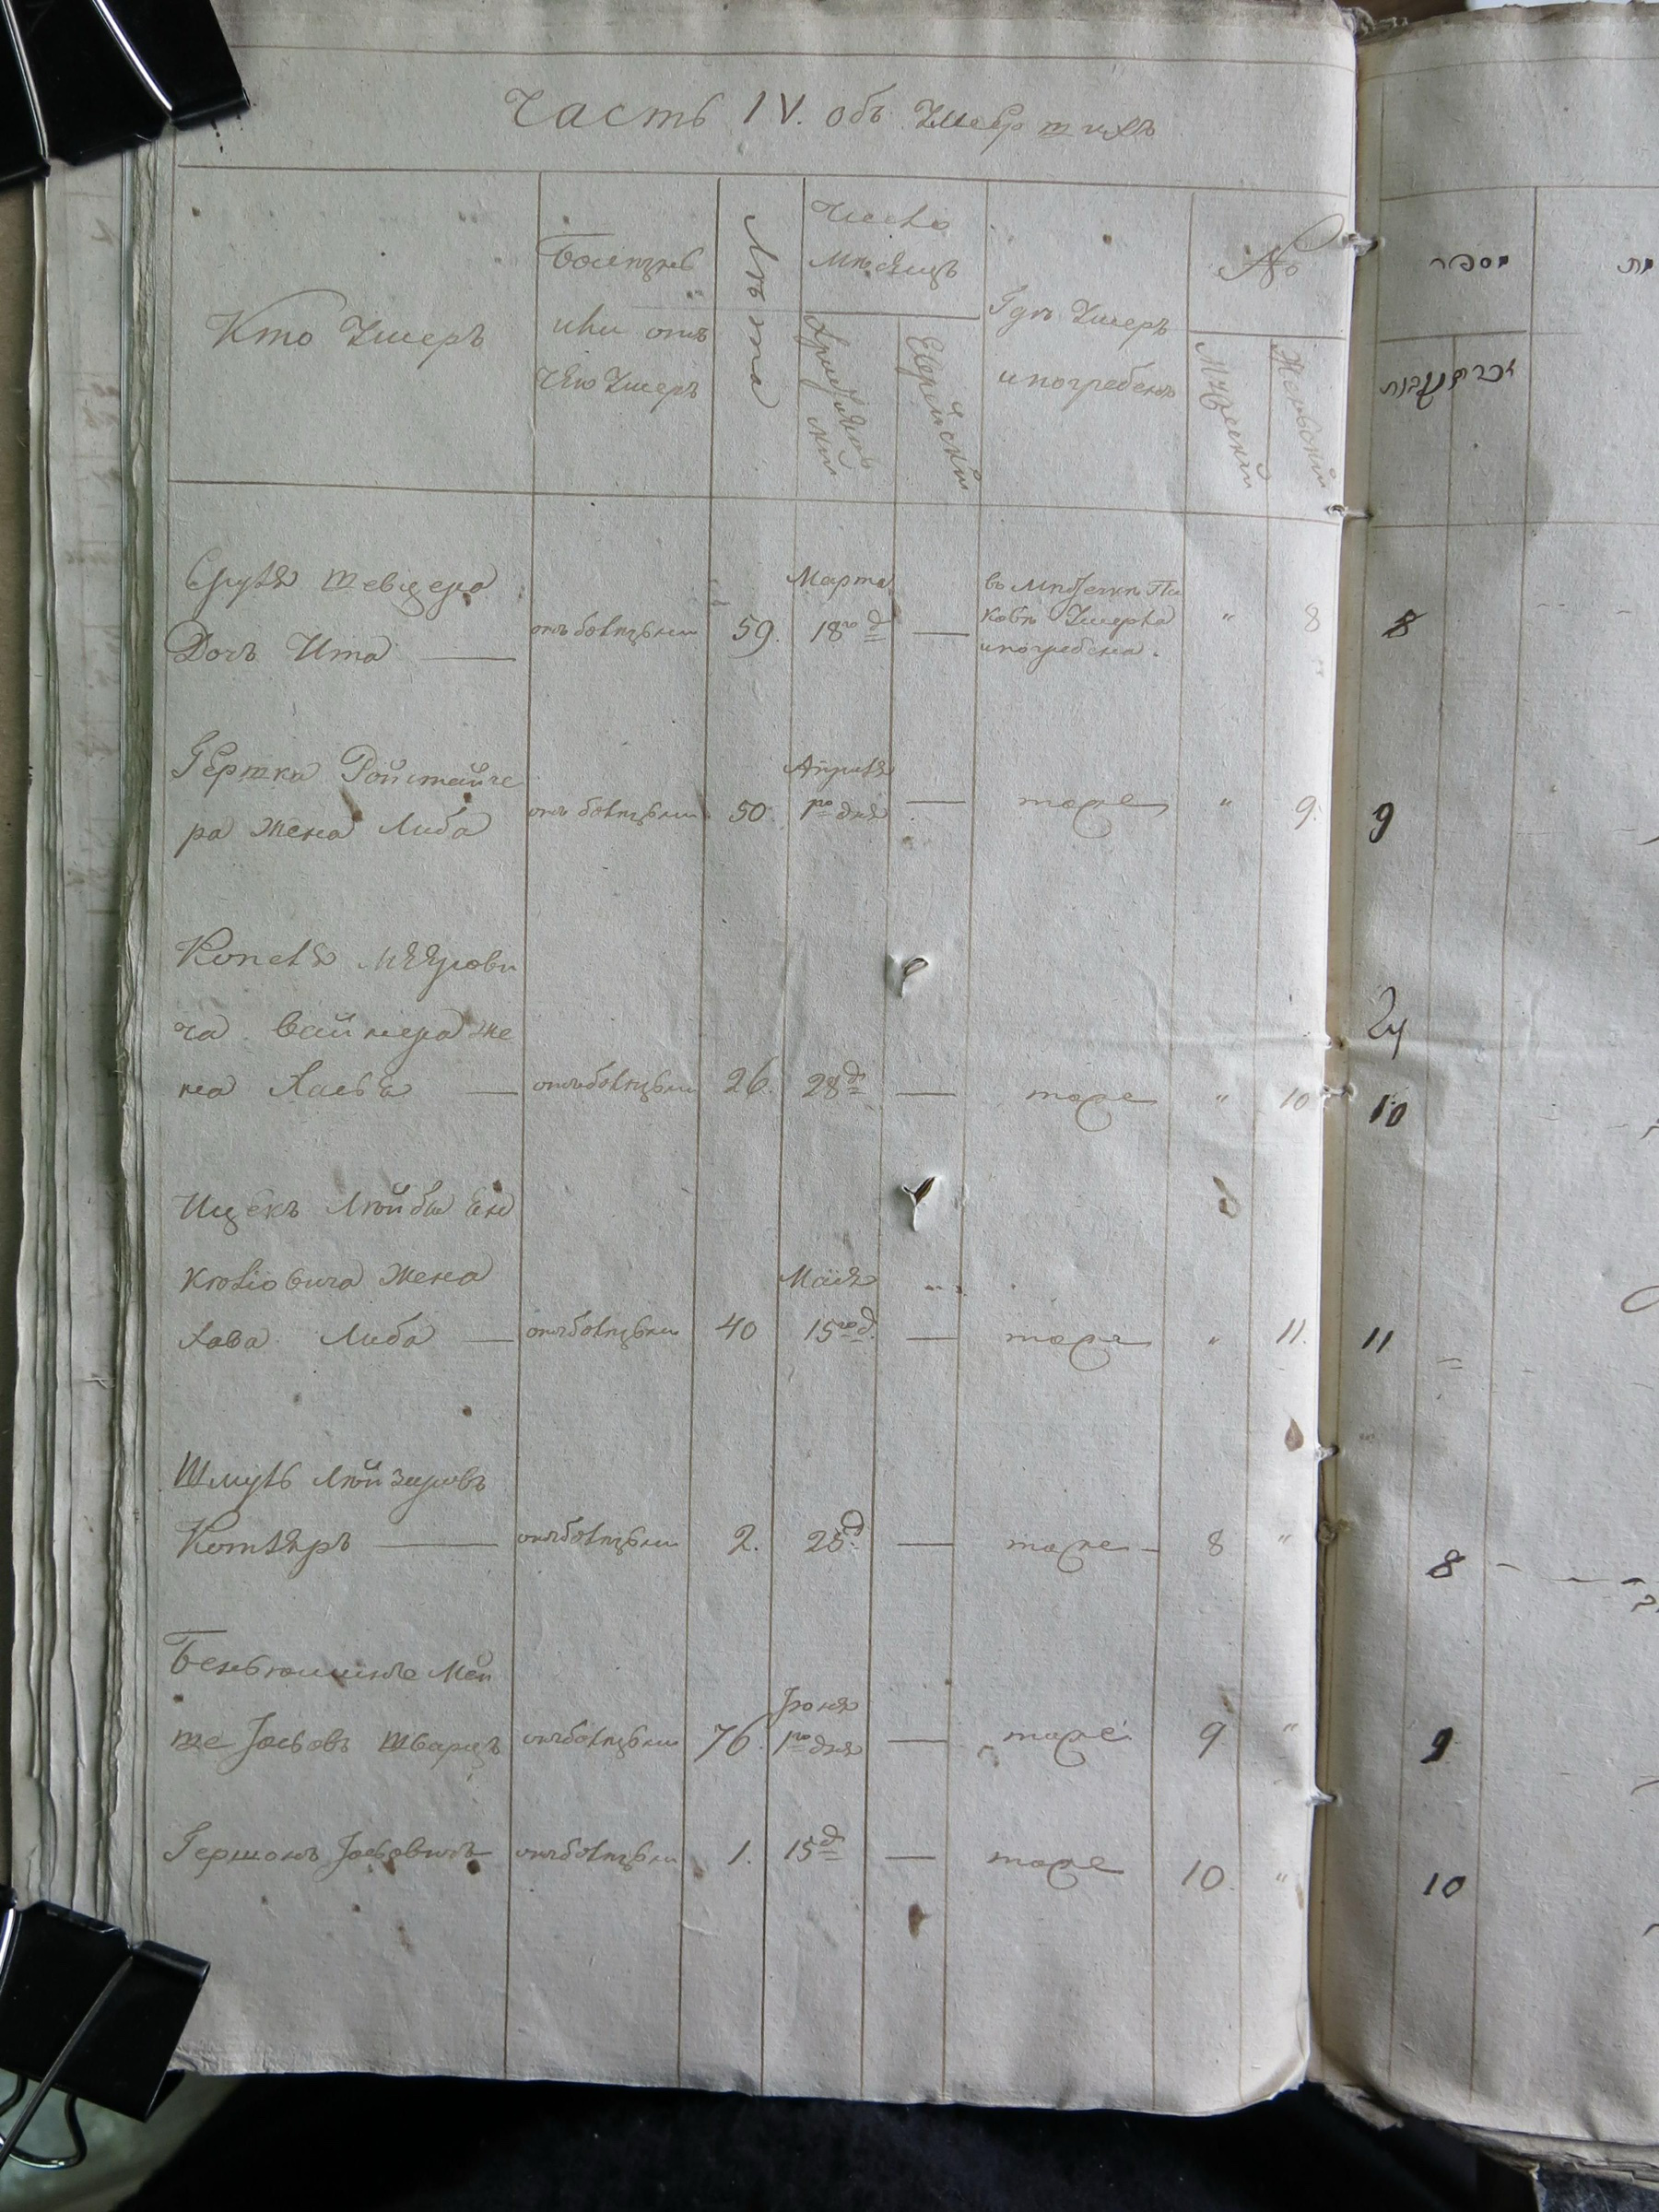 Часть IV. объ Умершихъ
Кто Умеръ
Болезнь
или отъ
чего Умеръ
Лѣта
Число
Мѣсяцъ
Христіянскій
Еврейскій
Гдѣ Умеръ
и погребенъ
№
Мужескій
Женьскій
Сруля Шевцера
Дочъ Ита — отъ болѣзьни 59. Марта 18го д — въ Мѣстечкѣ Пиковѣ Умерла и погребена. " 8
Гершка Ройтмайче
ра Жена Либа отъ болѣзьни 50. Апреля 1го дня — тоже " 9.
Копеля
ча Вайнера Же
на Хасья — отъ болѣзьни 26. 28 д — тоже " 10
Ицекъ Лейбы
Жена
Хава Либа — отъ болѣзьни 40 Маія 15го д. — тоже " 11.
Шмуль Лейзеровъ
Котляръ — отъ болѣзьни 2. 25 д. — тоже — 8 "
Беньюминъ Мей
ше Іосьовъ Шварцъ отъ болѣзьни 76. Іюня 1го дня — тоже 9 "
Гершонъ Іосьовичъ отъ болѣзьни 1. 15 д — тоже 10. "
מספר
8
9
10
11
8
9
10